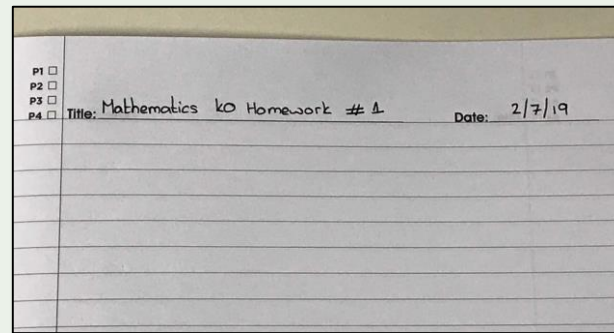 P1 ☐
P2 ☐
P3 ☐
P4 ☐ Title: Mathematics KO Homework # 1 Date: 2/7/19